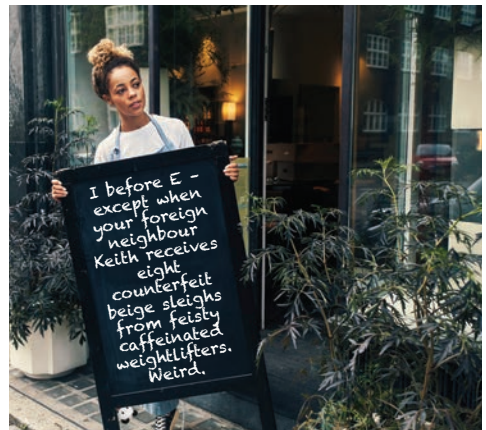 I before E -
except when
your foreign
neighbour
Keith receives
eight
counterfeit
beige sleighs
from feisty
caffeinated
weightlifters.
Weird.